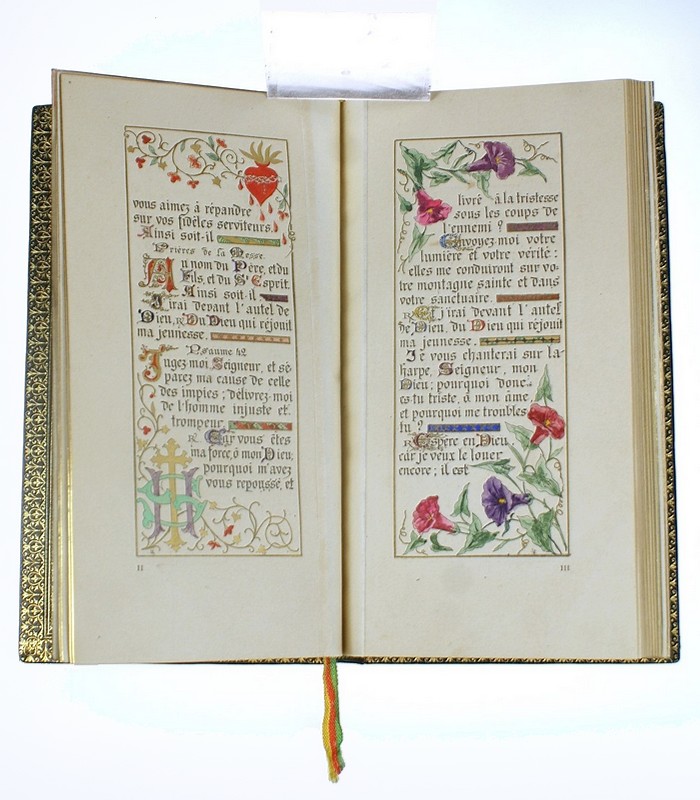 vous aimez à répandre
sur vos fidèles serviteurs.
Ainsi soit-il
Prières de la Messe.
Au nom du Père, et du
Fils, et du St Esprit.
Ainsi soit-il
J'irai devant l'autel de
Dieu, ℟ Du Dieu qui réjouit
ma jeunesse.
Psaume 42
Jugez moi Seigneur, et sé-
parez ma cause de celle
des impies; délivrez-moi
de l'homme injuste et
trompeur.
℟ Car vous êtes
ma force, ô mon Dieu;
pourquoi m'avez
vous repoussé, et
II
livré à la tristesse
sous les coups de
l'ennemi ?
Envoyez-moi votre
lumière et votre vérité :
elles me conduiront sur vo-
tre montagne sainte et dans
votre sanctuaire.
℟ J'irai devant l'autel
de Dieu, du Dieu qui réjouit
ma jeunesse.
Je vous chanterai sur la
harpe, Seigneur, mon
Dieu; pourquoi donc
es-tu triste, ô mon âme,
et pourquoi me troubles
tu ?
℟ Espère en Dieu,
car je veux le louer
encore; il est
III